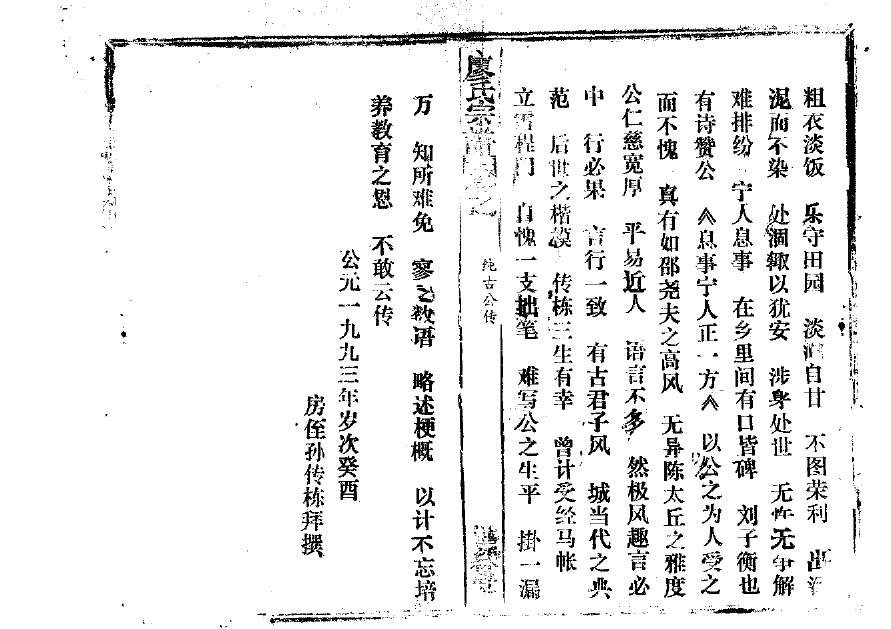 粗衣淡饭 乐守田园 淡泊自甘 不图荣利 出淤
泥而不染 处涸辙以犹安 涉身处世 无忤无争解
难排纷 宁人息事 在乡里间有口皆碑 刘子衡也
有诗赞公 《息事宁人正一方》 以公之为人受之
而不愧 真有如邵尧夫之高风 无异陈太丘之雅度
公仁慈宽厚 平易近人 语言不多 然极风趣言必
中 行必果 言行一致 有古君子风 城当代之典
范 后世之楷模 传栋三生有幸 曾计受经马帐
立雪程门 自愧一支拙笔 难写公之生平 掛一漏
廖氏宗谱
纯古公传
万 知所难免 寥寥数语 略述梗概 以计不忘培
养教育之恩 不敢云传
公元一九九三年岁次癸酉
房侄孙传栋拜撰